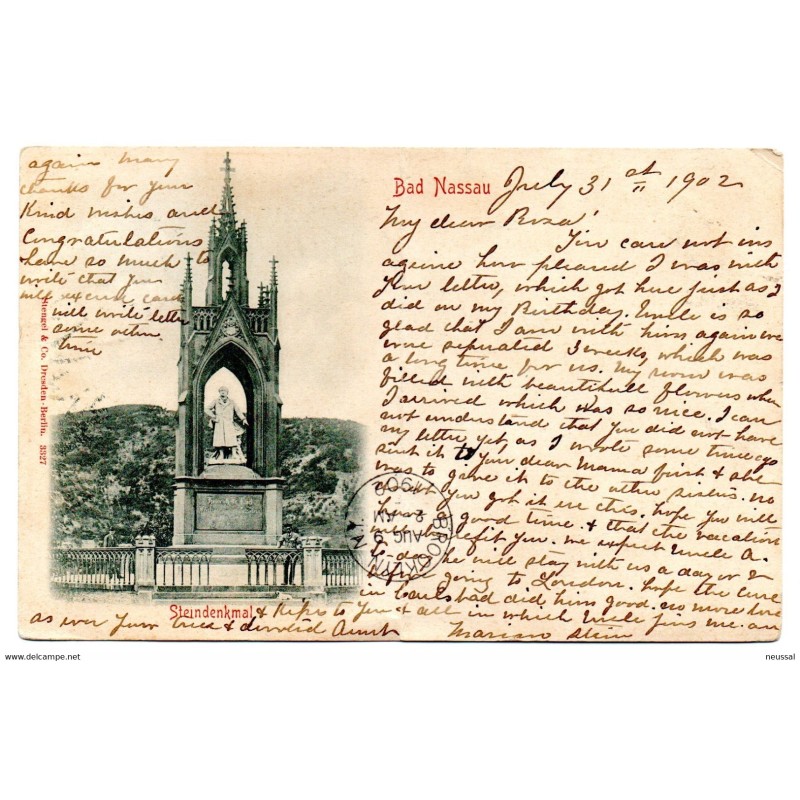 Bad Nassau July 31 st 1902
My dear Roza!
You can not im
agine how pleased I was with
Your letter, which got here just as I
did on my Birthday. Uncle is so
glad that I am with him again we
were seperated 3 weeks, which was
a long time for us. My room was
filled with beautifull flowers when
I arrived which was so nice. I can
not understand that you did not have
my letter yet, as I wrote some time ago
sent it to your dear Mama first & she
was to gave it to the other sisters. no
you got it ere this. hope you will
have good time. & that the vacation
will benefit you. we expect Uncle A.
to-day he will stay with us a day or 2
going to London. hope the cure
in Carlsbad did him good. no more love
& Kisses to you & all in which Uncle joins me. am
as ever your true & devoted Aunt
Marian Stein
again many
thanks for your
Kind wishes and
Congratulations
have so much to
write that you
will excuse card
will write letter
some other
time
Stengel & Co. Dresden-Berlin. 3327
Steindenkmal
BROOKLYN N.Y.
AUG 9
2 AM
1902
www.delcampe.net
neussal